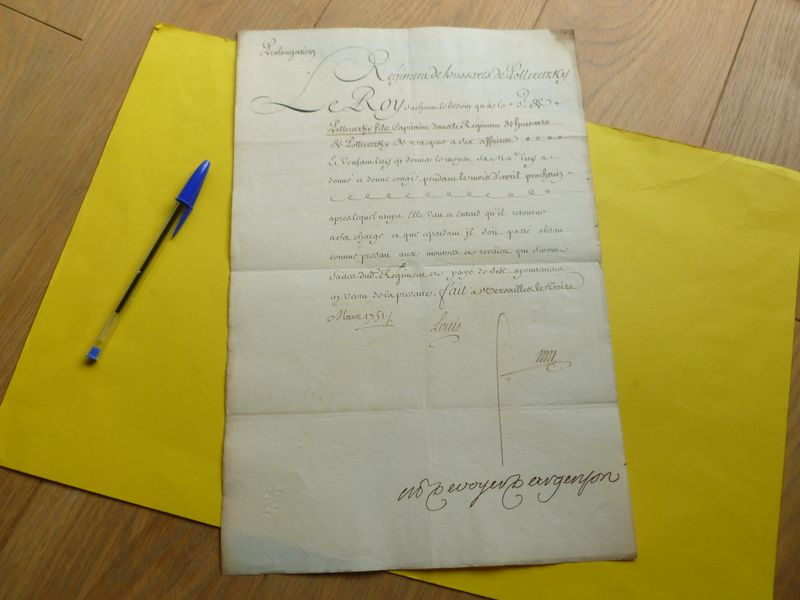 Prolongation
Regiment de hussarts de Polleretzky
Le Roy sachant le besoin qu'a le S. de
Polleretzky fils Capitaine dans le Regiment de hussarts
de Polleretzky de vacquer a ses affaires
Et voulant luy en donner le moyen, sa Ma.té luy a
donné et donne congé pendant le mois d'avril prochain
apres lequel temps Elle veut et entend qu'il retourne
a sa charge et que cependant il soit passé absent
comme present aux montres et reveües qui seront
faites dud. Regiment et payé de ses apointemens
en vertu de la presente. fait a Versailles le Treize
Mars 1751
Louis
M de voyer Dargenson